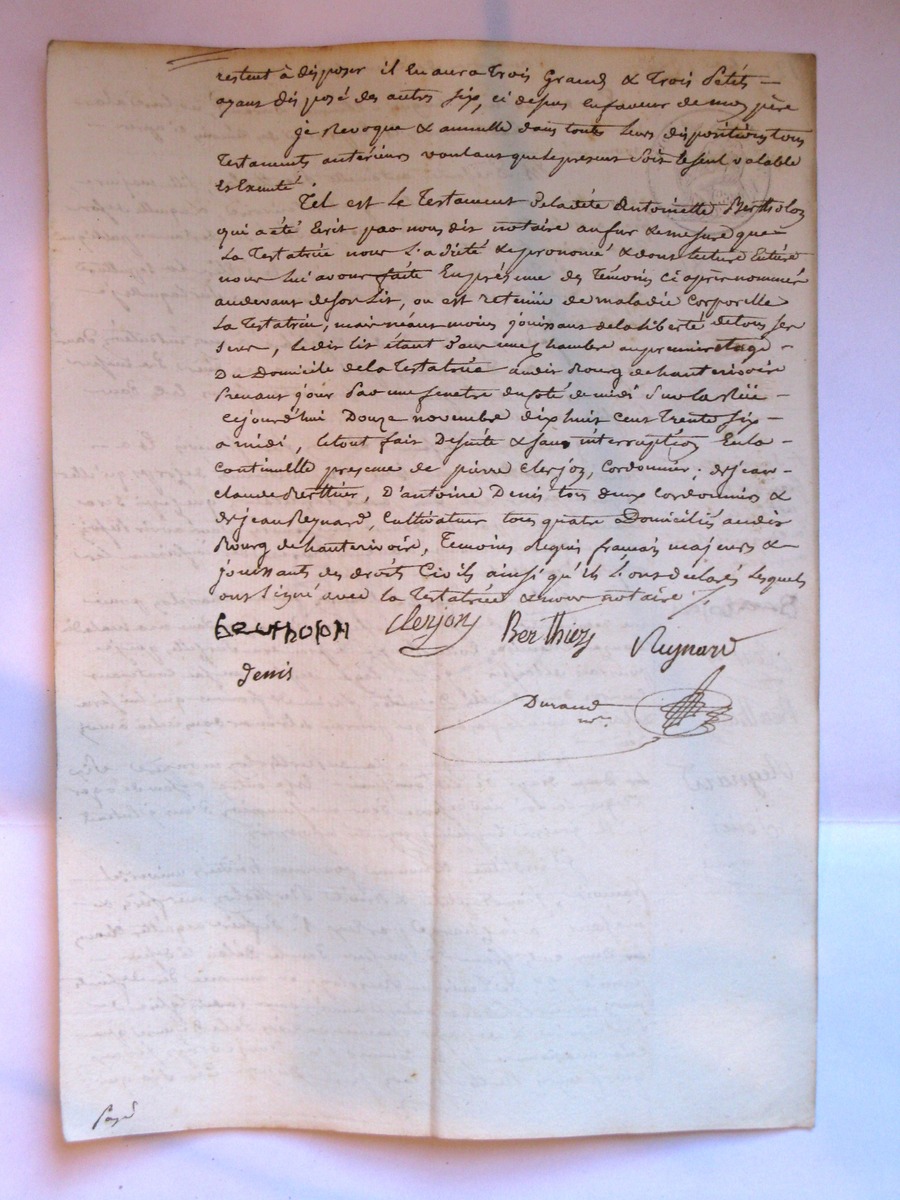 restent à disposer il en aura Trois Grand & Trois Petits
ayant disposé des autres Six, ci dessus en faveur de mon père
je Revoque & annulle dans toutes leurs dispositions tous
Testaments anterieurs voulant que le present Soit le seul valable
Et Exeuté
Tel est Le Testament De ladite Antoinette Bertholon
qui a été Ecrit par nous dit notaire au fur & mesure que
La Testatrice nous L'a dicté & prononcé & dont lecture Entière
nous lui avons faite En présence des Témoins Ci après nommés
au devant de son Lit, ou est retenue de maladie Corporelle
La Testatrice, mais néant moins jouissant de la liberté de tous ses
sens, Ledit lit étant dans une Chambre au premier étage
Du Domicile de la Testatrice audit Bourg de hauterivoire
Prenant jour Par une fenetre du Coté de midi Sur la Rue
Cejourd'hui Douze novembre dix huit Cent Trente Six
a midi, Le tout fait De suite & sans interruption En la
Continuelle presence de pierre Clerjon, Cordonnier; de jean
Claude Berthier, D'antoine Denis tous deux Cordonniers &
de jean Reynard, Cultivateur tous quatre Domiciliés audit
Bourg de hauterivoire, Temoins Requis français majeurs &
jouissants des droits Civils ainsi qu'ils L'ont déclarés Lesquels
ont Signé avec La Testatrice & nous notaire
Bertholon Clerjon Berthier Reynard
Denis
Durand
nre.
Payé